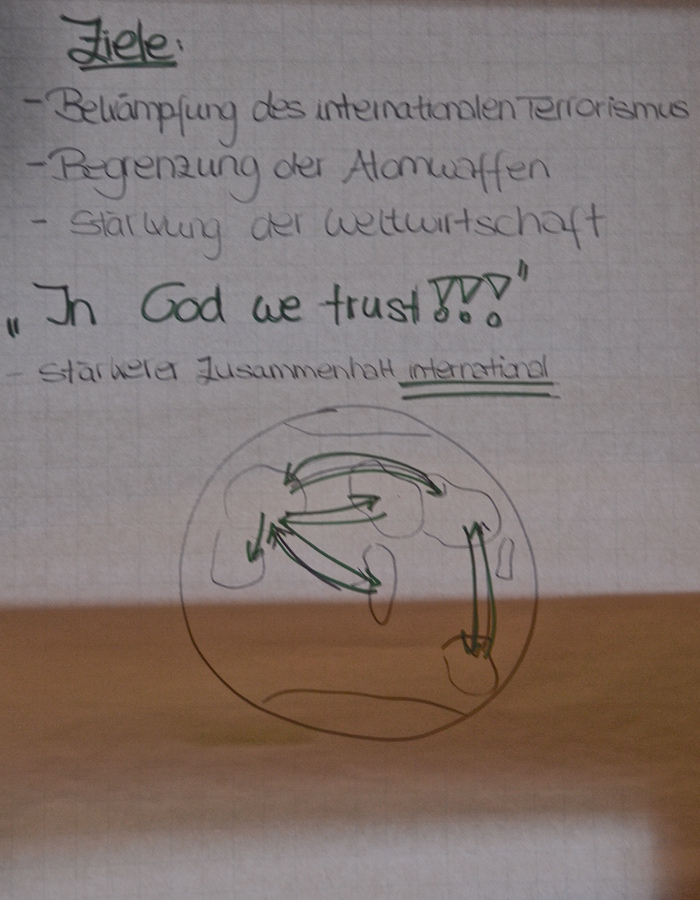 Ziele:
- Bekämpfung des internationalen Terrorismus
- Begrenzung der Atomwaffen
- Stärkung der Weltwirtschaft
„In God we trust!!!"
- stärkerer Zusammenhalt international